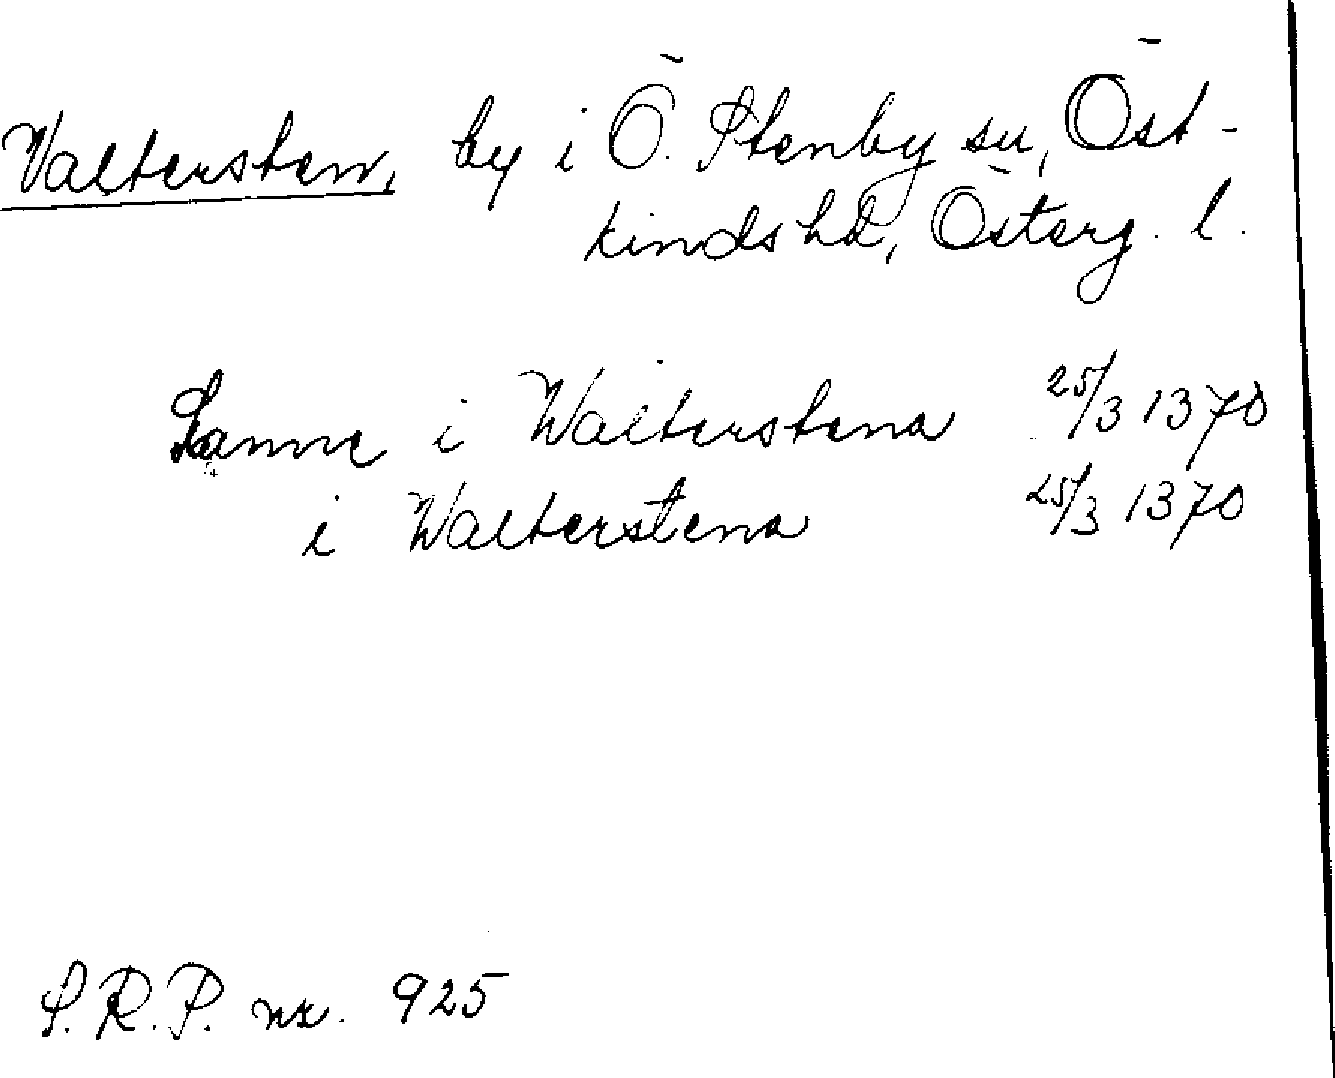 Valtersten, by i Ö. Stenby sn, Öst-
kinds hd, Österg. l.
i Walterstena 25/3 1370
i Walterstena 25/3 1370
S.R.P. nr. 925